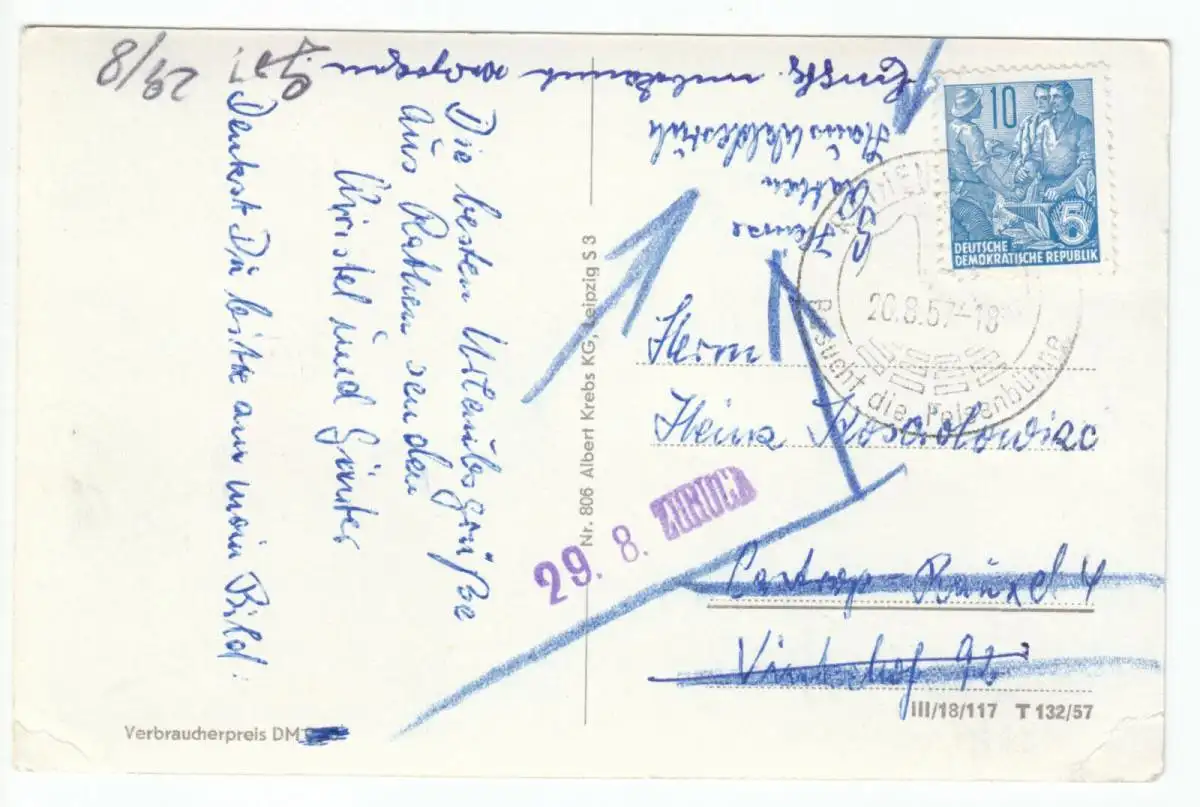 29/8
Die besten Urlaubsgrüße
aus Rathen senden
Christel und Günter
Denkst Du bitte am mein Bild.
Verbraucherpreis DM
Nr. 806 Albert Krebs KG, Leipzig S 3
verzogen
Haus
Rathen
10
5
DEUTSCHE
DEMOKRATISCHE REPUBLIK
20.8.57-18
Besucht die Felsenbühne
Herrn
Heinz
29. 8. ZURÜCK
Castrop-Rauxel 4
III/18/117 T 132/57